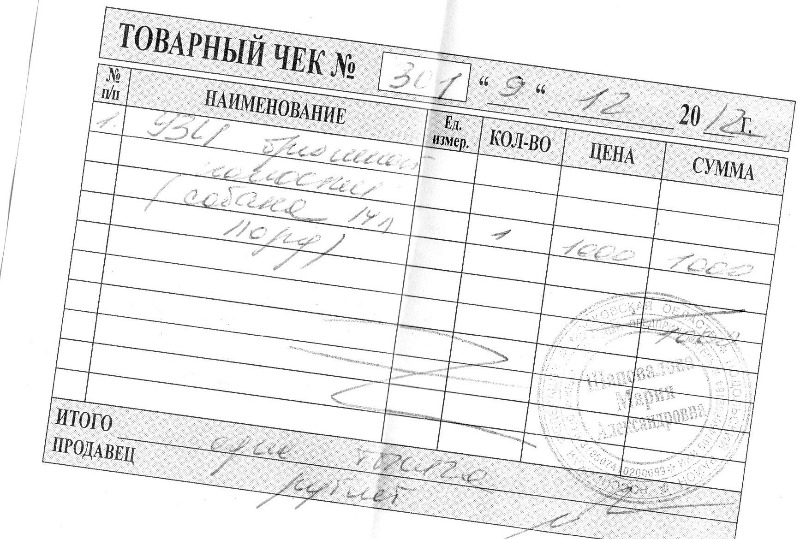 ТОВАРНЫЙ ЧЕК № 301 " 9 " 12 2012г.
№ п/п НАИМЕНОВАНИЕ Ед. измер. КОЛ-ВО ЦЕНА СУММА
1. УЗИ брюшной
полости
(собака 14 л
1 1000 1000
1000
Шаповалова
Мария
Александровна
ИТОГО одна тысяча
ПРОДАВЕЦ рублей